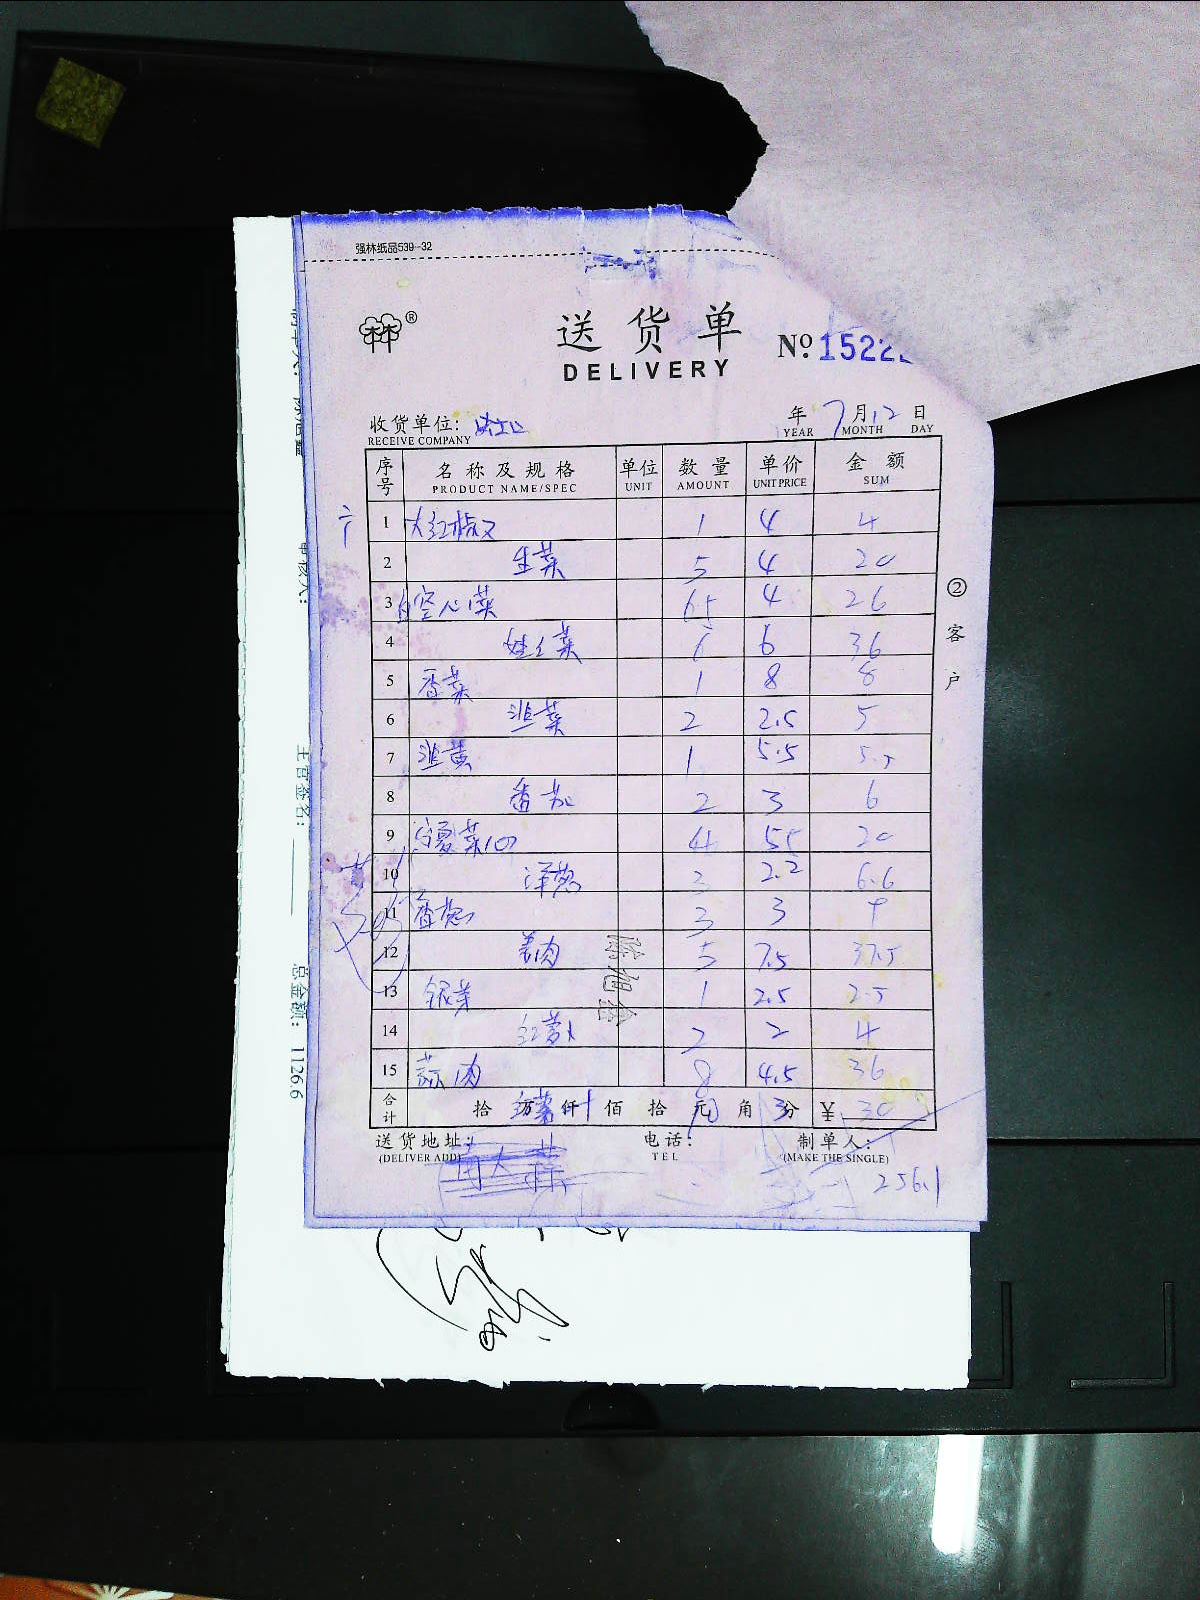 强林纸品539--32
送货单
DELIVERY
Nº 1522
收货单位:
RECEIVE COMPANY
年 7月12日
YEAR MONTH DAY
序号 名称及规格 单位 数量 单价 金额
PRODUCT NAME/SPEC UNIT AMOUNT UNIT PRICE SUM
1 大红椒 1 4 4
2 生菜 5 4 20
3 空心菜 65 4 26
4 娃菜 6 6 36
5 香菜 1 8 8
6 韭菜 2 2.5 5
7 韭黄 1 5.5 5.5
8 番茄 2 3 6
9 菜 4 55 20
10 洋葱 3 2.2 6.6
11 香葱 3 3 9
12 姜肉 5 7.5 37.5
13 银芽 1 2.5 2.5
14 红萝卜 2 2 4
15 蒜肉 8 4.5 36
合计 拾 万 仟 佰 拾 元 角 分 ¥ 30
送货地址:
(DELIVER ADD)
电话:
TEL
制单人:
(MAKE THE SINGLE)
256.1
②客户
陈旭鑫
审核人:
主管签名:
总金额: 1126.6